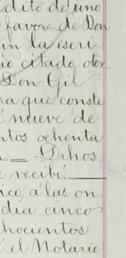 dito de uno
favor de Don
un la escri
io citado, otor
Don Gil
ra que conste
nueve de
ntos ochenta
n.— Drhos
e recibí.—
ico, a las on
dia cinco
hocientos
el Notario